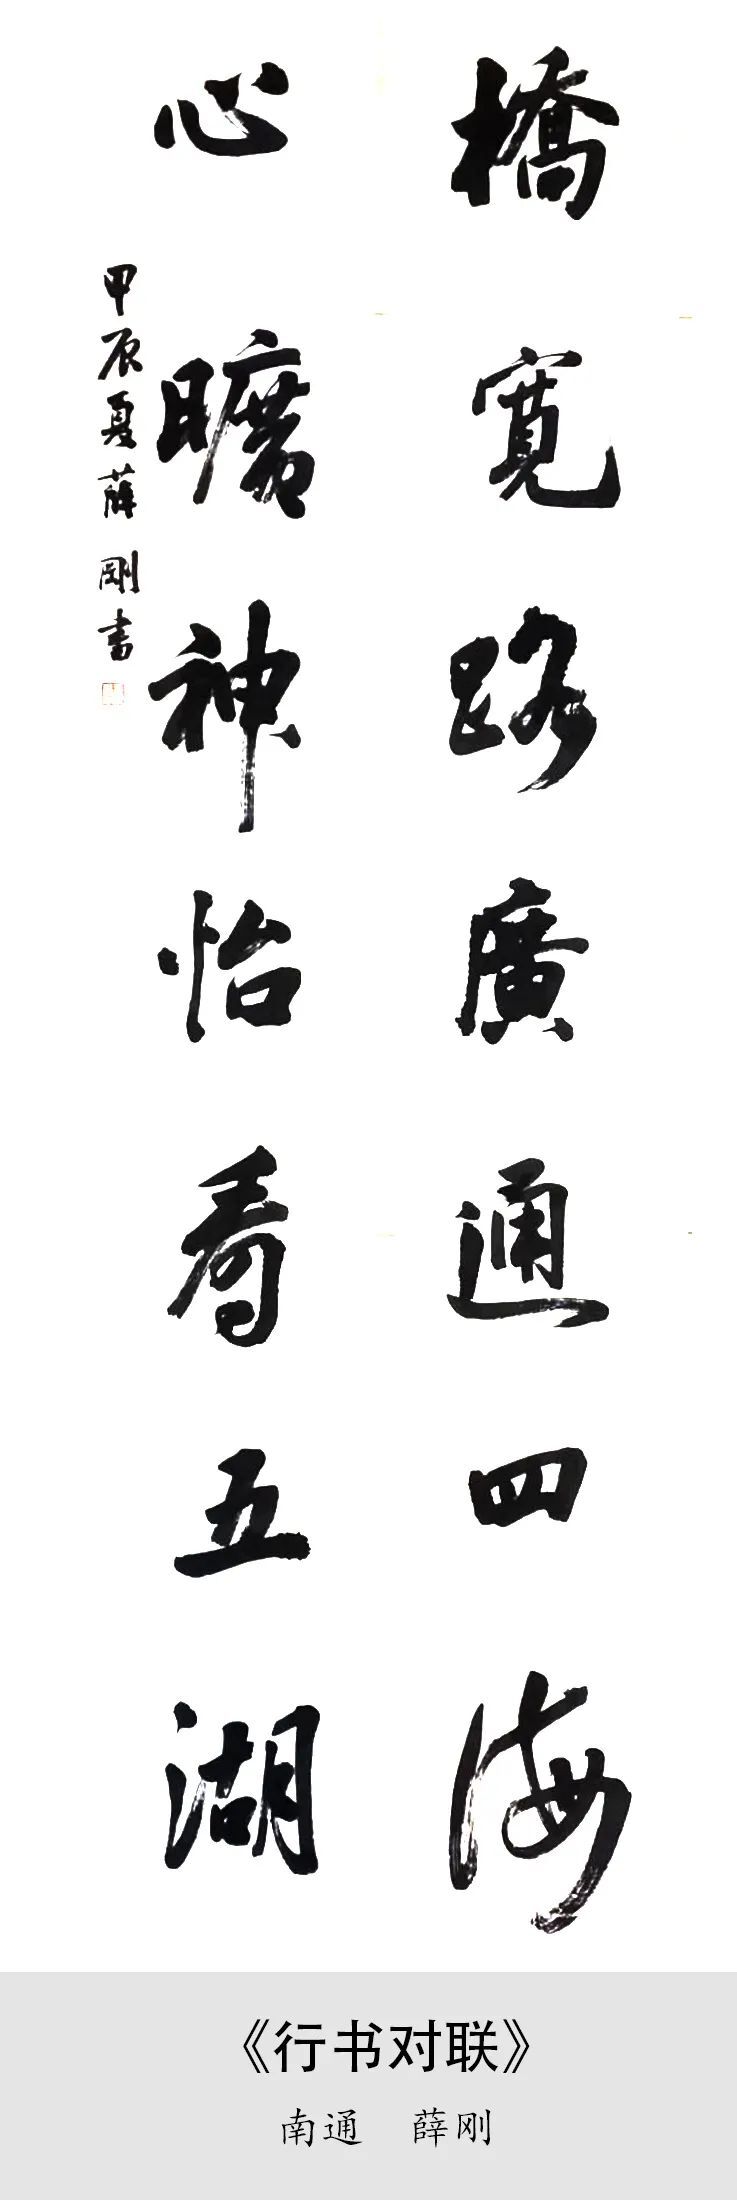 橋寬路廣通四海
心曠神怡看五湖
甲辰夏薛剛書
《行书对联》
南通 薛刚